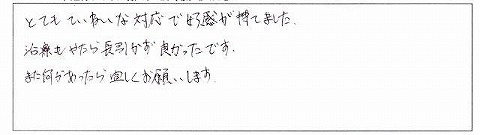 とてもていねいな対応で好感が持てました.
治療もやたら長引かず良かったです.
また何かあったら宜しくお願いします.